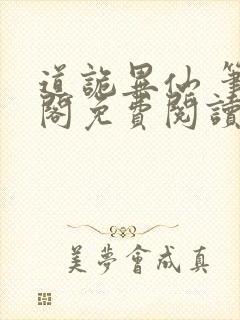 道詭異仙 筆
閣免費閱讀
美夢會成真